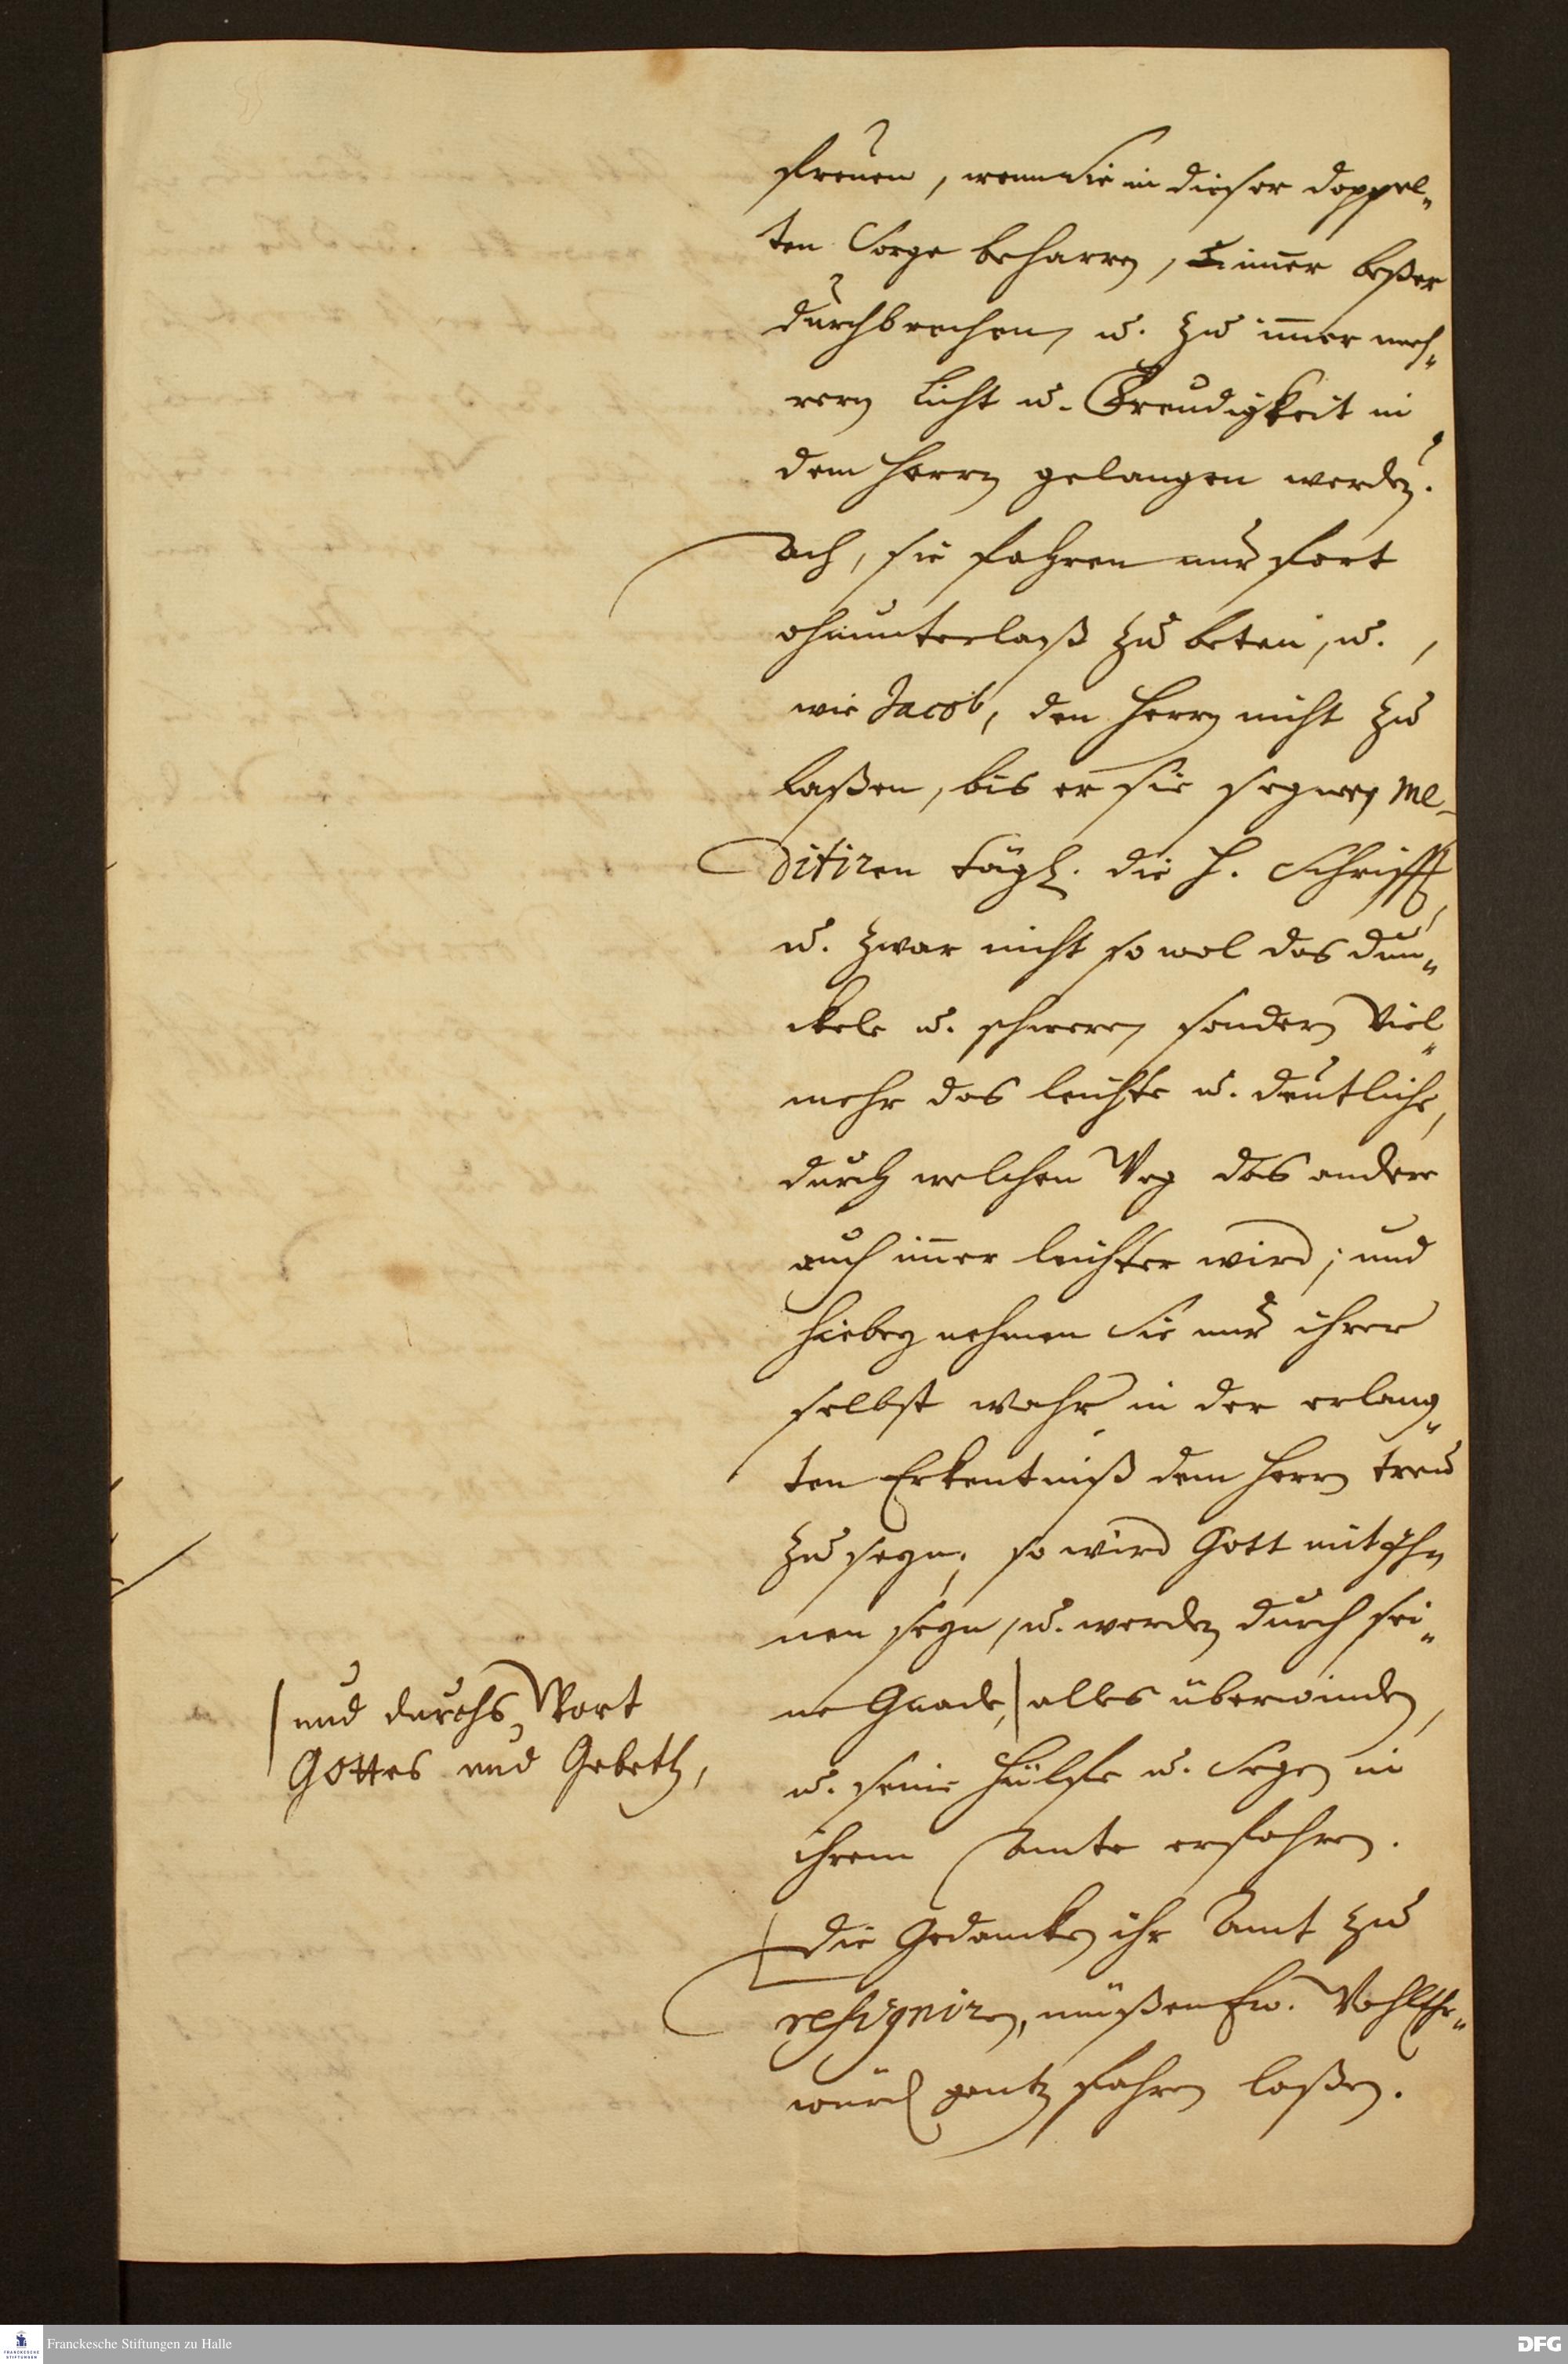 freuen, wenn Sie in dieser doppel„
ten Sorge beharren, immer beßer
durchbrechen, u. zu immer meh„
rern Licht u. Freudigkeit in
dem Herrn gelangen werden.
Ach, sie fahren nur fort
ohnunterlaß zu beten, u.,
wie Jacob, den Herrn nicht zu
laßen, bis er sie segne, me-
ditiren tägl. die H. Schrifft,
u. zwar nicht so wol das dun„
ckele u. schwere, sondern viel„
mehr das leichte u. deutliche,
durch welchen Weg das andere
auch immer leichter wird; und
hiebey nehmen Sie nur ihrer
selbst wahr in der erlang„
ten Erkentniß dem Herrn treu
zu seyn; so wird Gott mit Ih
nen seyn, u. werden durch sei„
ne Gnade, | alles überwinden,
| und durchs Wort
Gottes und Gebeth,
u. seine Hülfe u. Segen in
ihrem Amte erfahren.
Die Gedancken ihr Amt zu
resigniren, müßen Ew. WohlEhr„
würd gantz fahren laßen.
Franckesche Stiftungen zu Halle
FRANCKESCHE STIFTUNGEN
DFG